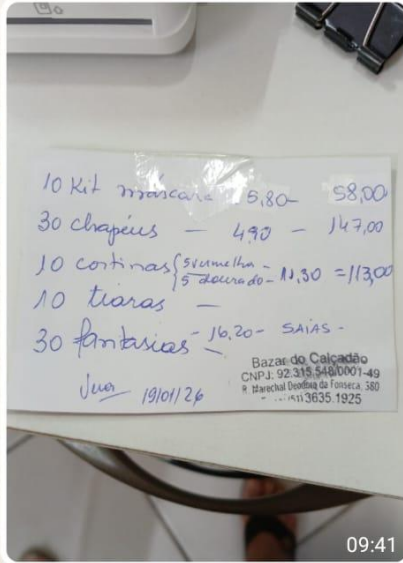 10 Kit máscara 5,80 - 58,00
30 chapéus - 4,90 - 147,00
10 cortinas { 5 vermelha -
5 dourado - 11,30 = 113,00
10 tiaras -
30 fantasias - 16,20 - SAIAS -
19/01/26
Bazar do Calçadão
CNPJ: 92.315.548/0001-49
R. Marechal Deodoro da Fonseca, 380
(51) 3635.1925
09:41